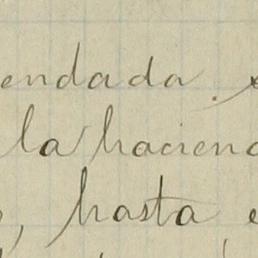 endada.
la hacien
, hasta